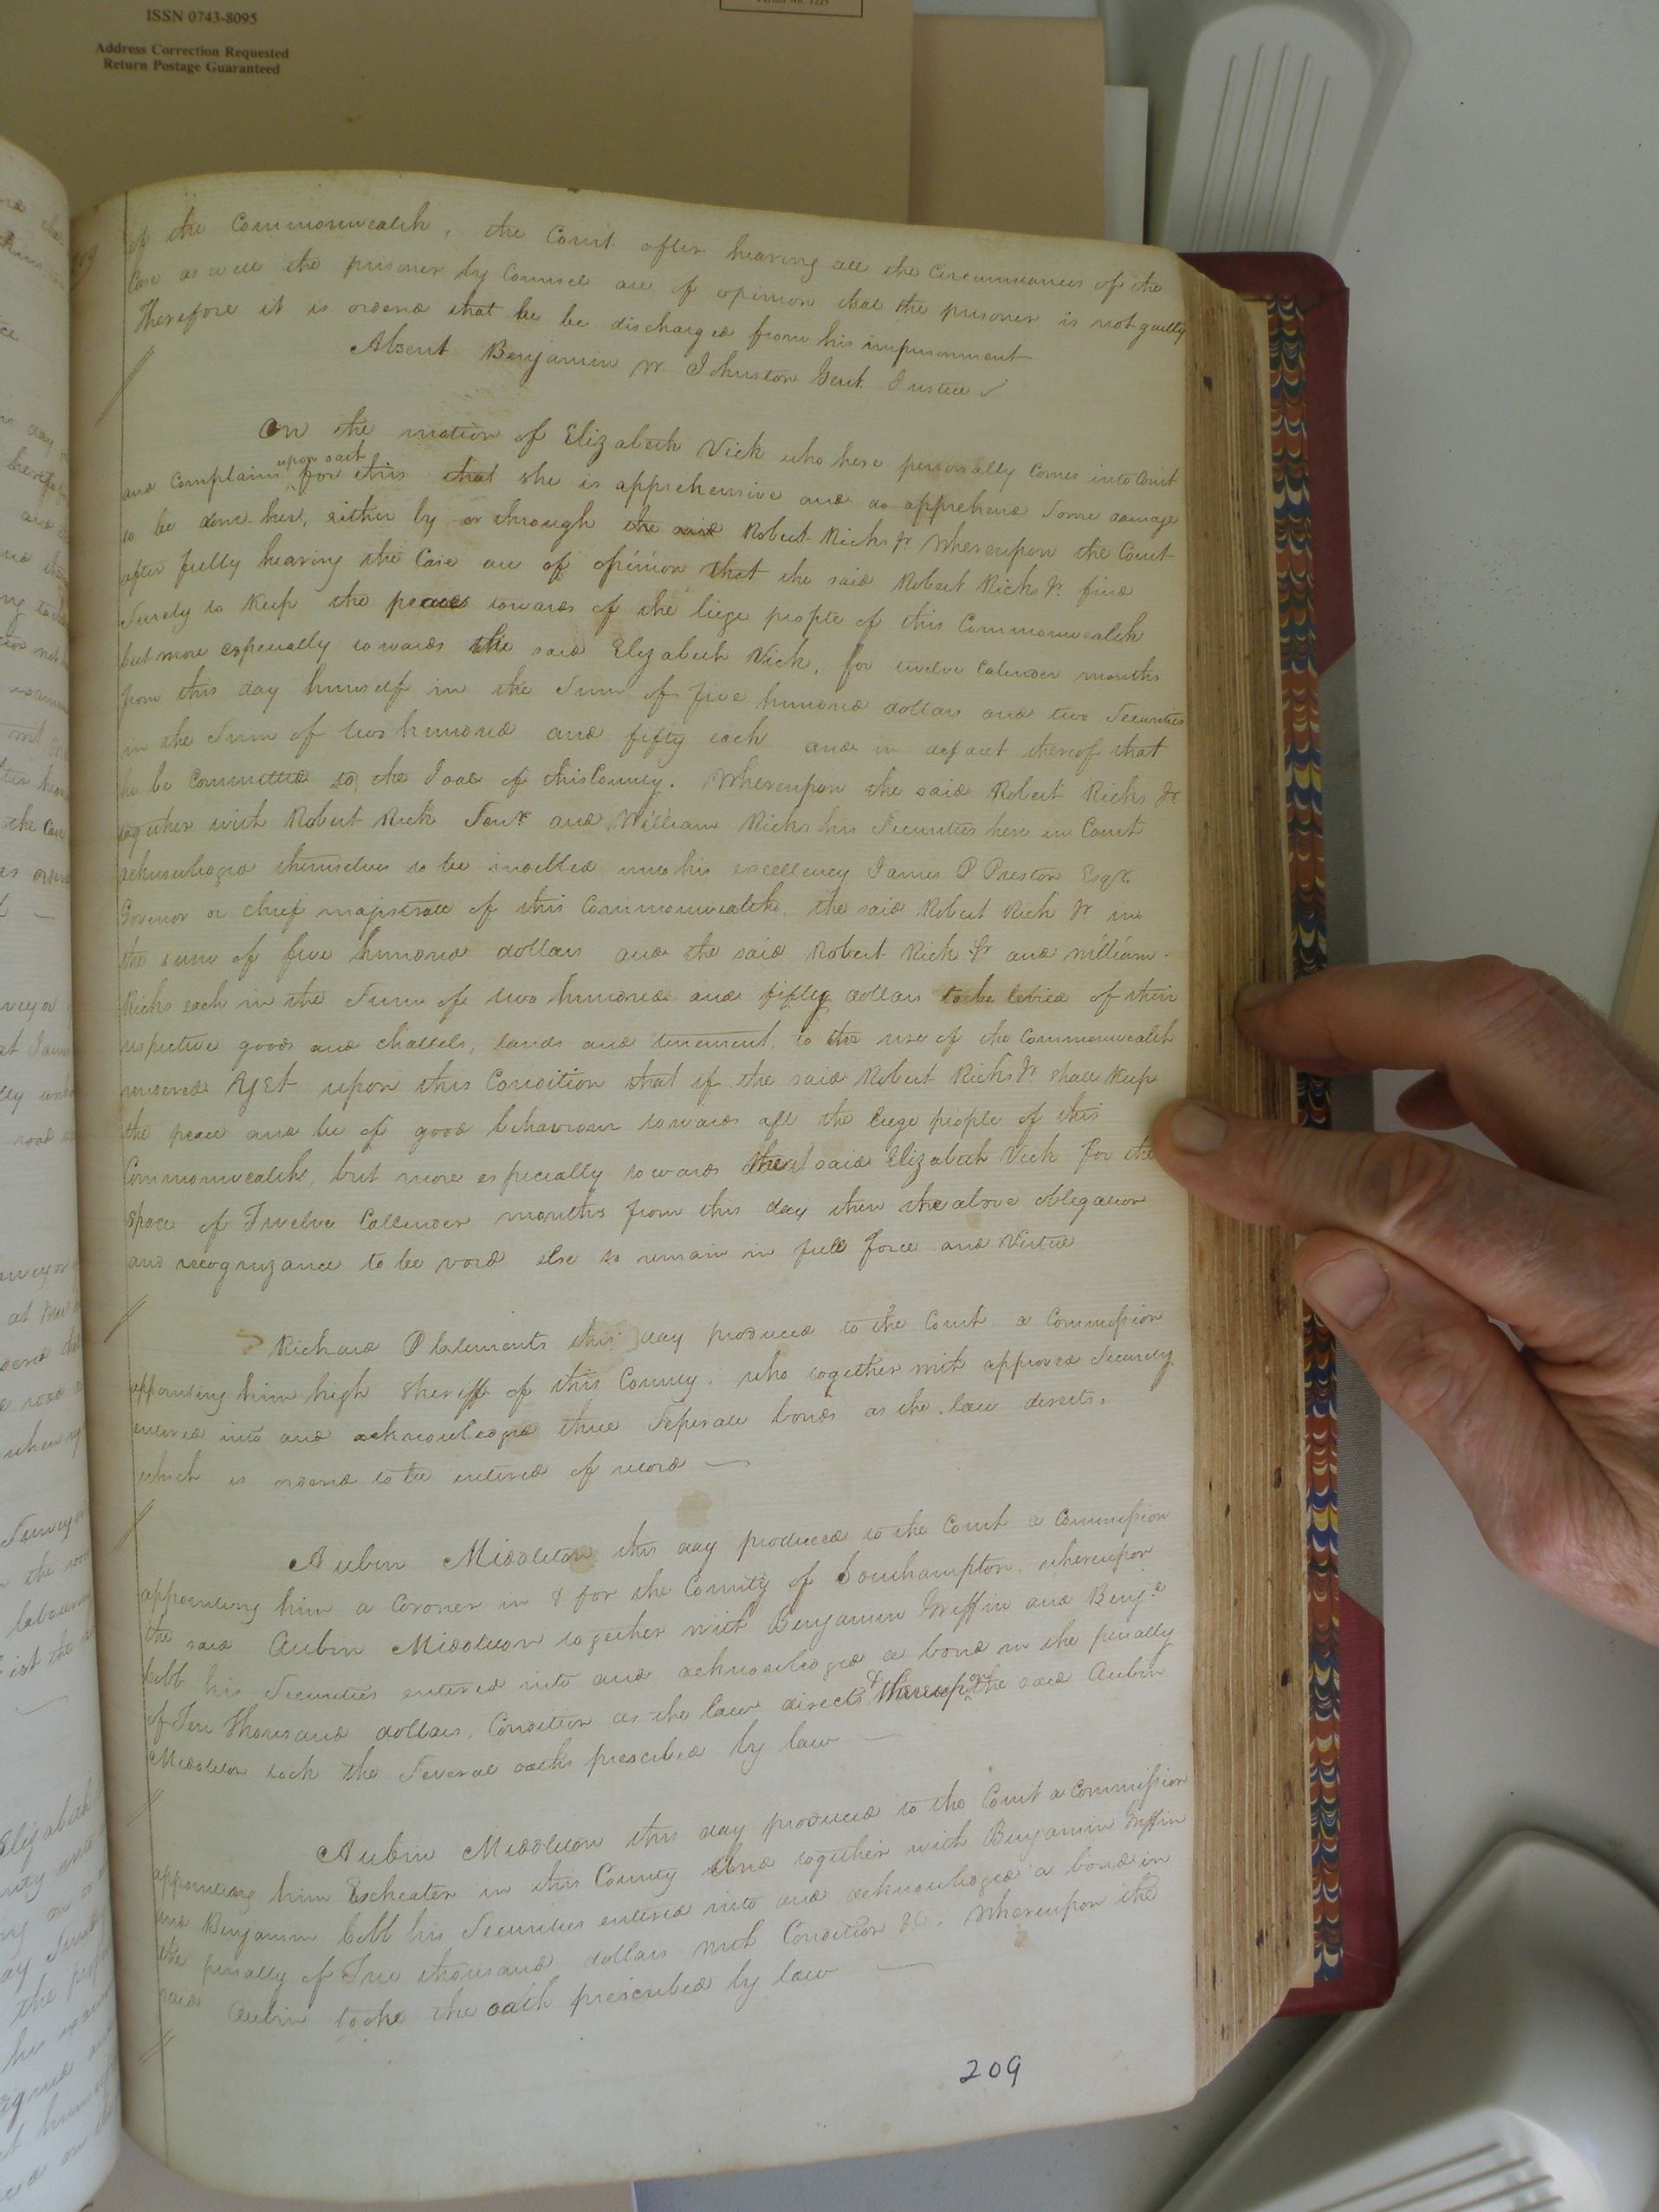 ISSN 0743-8095
Address Correction Requested
Return Postage Guaranteed
of the Commonwealth, the Court after hearing all the Circumstances of the
Case as well the prisoner by Counsel are of opinion that the prisoner is not guilty
Therefore it is orderd that he be discharged from his imprisonment
Absent Benjamin W. Johnston Gent Justice
On the motion of Elizabeth Vick who here personally comes into Court
upon oath
and Complains for this that she is apprehensive and do apprehend Some damage
to be done her, either by or through the and Robert Ricks Jr Whereupon the Court
after fully hearing the Case are of opinion that the said Robert Ricks Jr. find
Surety to Keep the peace towards of the liege people of this Commonwealth
but more especially towards the said Elizabeth Vick, for twelve Calender months
from this day himself in the Sum of five hundred dollars and two Securities
in the Sum of two hundred and fifty each and in default thereof that
he be Committed to the Joal of this County. Whereupon the said Robert Ricks Jr
together with Robert Rick Senr. and William Ricks his Securities here in Court
acknowledged themselves to be indebted unto his excellency James P Preston Esqr.
Govenor or chief magistrate of this Commonwealth, the said Robert Rick Jr in
the sum of five hundred dollars and the said Robert Rick Sr and William
Ricks each in the Sum of two hundred and fifty dollars to be levied of their
respective goods and chattels, lands and tenement, to the use of the Commonwealth
rendered Yet upon this Condition that if the said Robert Ricks Jr. shall Keep
the peace and be of good behaviour towards all the liege people of this
Commonwealth, but more especially towards the said Elizabeth Vick for the
Space of Twelve Callender months from this day then the above obligation
and recognizance to be void else to remain in full force and Virtue
Richard P Clements this day produced to the Court a Commission
appointing him high Sheriff of this County, who together with approved Security
entered into and acknowledged three Seperate bonds as the law directs,
which is orderd to be entered of record
Aubin Middleton this day produced to the Court a Commission
appointing him a Coroner in & for the County of Southampton, whereupon
the said Aubin Middleton together with Benjamin Griffin and Benja
Cobb his Securities entered into and acknowledged a bond in the penalty
of Ten Thousand dollars, Condition as the law directs & thereupon the said Aubin
Middleton took the Several oaths prescribed by law
Aubin Middleton this day produced to the Court a Commission
appointing him Escheator in this County and together with Benjamin Griffin
and Benjamin Cobb his Securities entered into and acknowledged a bond in
the penalty of thousand dollars with Condition &c. Whereupon the
said Aubin tooke the oath prescribed by law
209